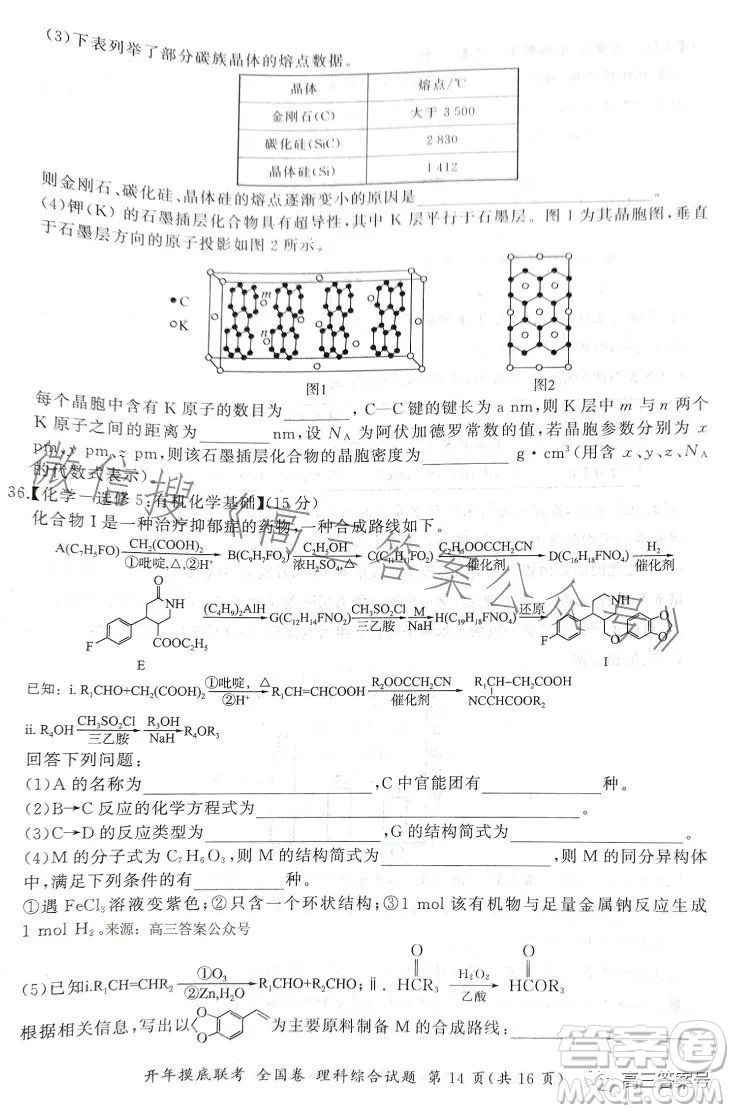 (3)下表列举了部分碳族晶体的熔点数据。
晶体 熔点/℃
金刚石(C) 大于 3 500
碳化硅(SiC) 2 830
晶体硅(Si) 1 412
则金刚石、碳化硅、晶体硅的熔点逐渐变小的原因是____________。
(4)钾(K)的石墨插层化合物具有超导性,其中 K 层平行于石墨层。图 1 为其晶胞图,垂直
于石墨层方向的原子投影如图 2 所示。
C
K
m
n
图1 图2
每个晶胞中含有 K 原子的数目为________,C—C 键的键长为 a nm,则 K 层中 m 与 n 两个
K 原子之间的距离为________nm,设 NA 为阿伏加德罗常数的值,若晶胞参数分别为 x
pm、y pm、z pm,则该石墨插层化合物的晶胞密度为________g·cm³(用含 x、y、z、NA
的代数式表示)。
36.【化学—选修 5:有机化学基础】(15 分)
化合物 I 是一种治疗抑郁症的药物,一种合成路线如下。
A(C7H5FO) CH2(COOH)2 ①吡啶,△,②H+ B(C9H7FO2) C2H5OH 浓H2SO4,△ C(C11H11FO2) C2H5OOCCH2CN 催化剂 D(C16H18FNO4) H2
O NH F COOC2H5 E (C4H9)2AlH G(C12H14FNO2) CH3SO2Cl 三乙胺 M NaH H(C19H18FNO4) 还原 F NH O O O I
已知:i.R1CHO+CH2(COOH)2 ①吡啶,△ ②H+ R1CH=CHCOOH R2OOCCH2CN 催化剂 R1CH—CH2COOH
NCCHCOOR2
ii.R4OH CH3SO2Cl 三乙胺 R3OH NaH R4OR3
回答下列问题:
(1)A 的名称为____________,C 中官能团有________种。
(2)B→C 反应的化学方程式为____________。
(3)C→D 的反应类型为____________,G 的结构简式为____________。
(4)M 的分子式为 C7H6O3,则 M 的结构简式为____________,则 M 的同分异构体
中,满足下列条件的有________种。
①遇 FeCl3 溶液变紫色;②只含一个环状结构;③1 mol 该有机物与足量金属钠反应生成
1 mol H2。来源:高三答案公众号
(5)已知i.R1CH=CHR2 ①O3 ②Zn,H2O R1CHO+R2CHO;ii. HCR3 O H2O2 乙酸 HCOR3 O
根据相关信息,写出以 O O 为主要原料制备 M 的合成路线:____________
开年摸底联考 全国卷 理科综合试题 第 14 页(共 16 页)
微信搜《高三答案公众号》
答案圈
高三答案号